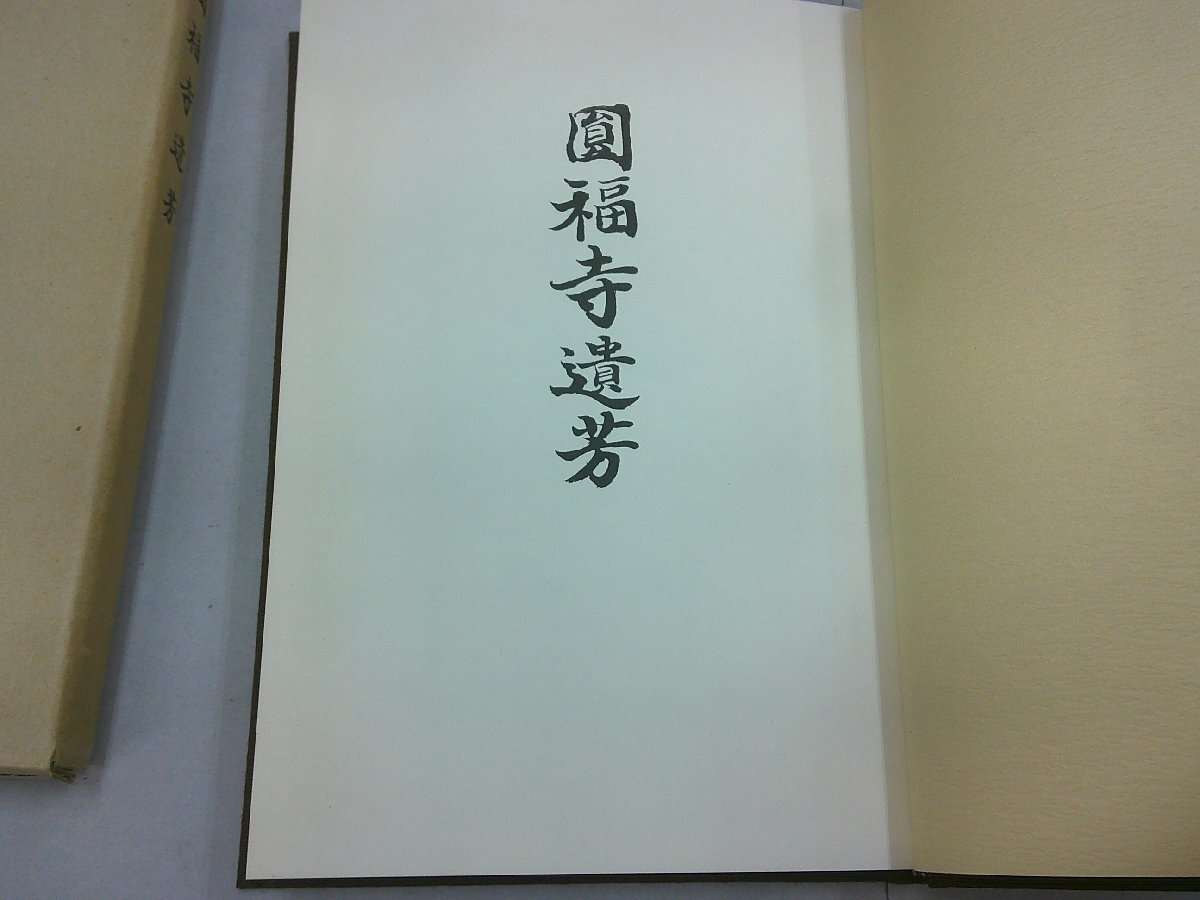 圓福寺遺芳
福寺遺芳